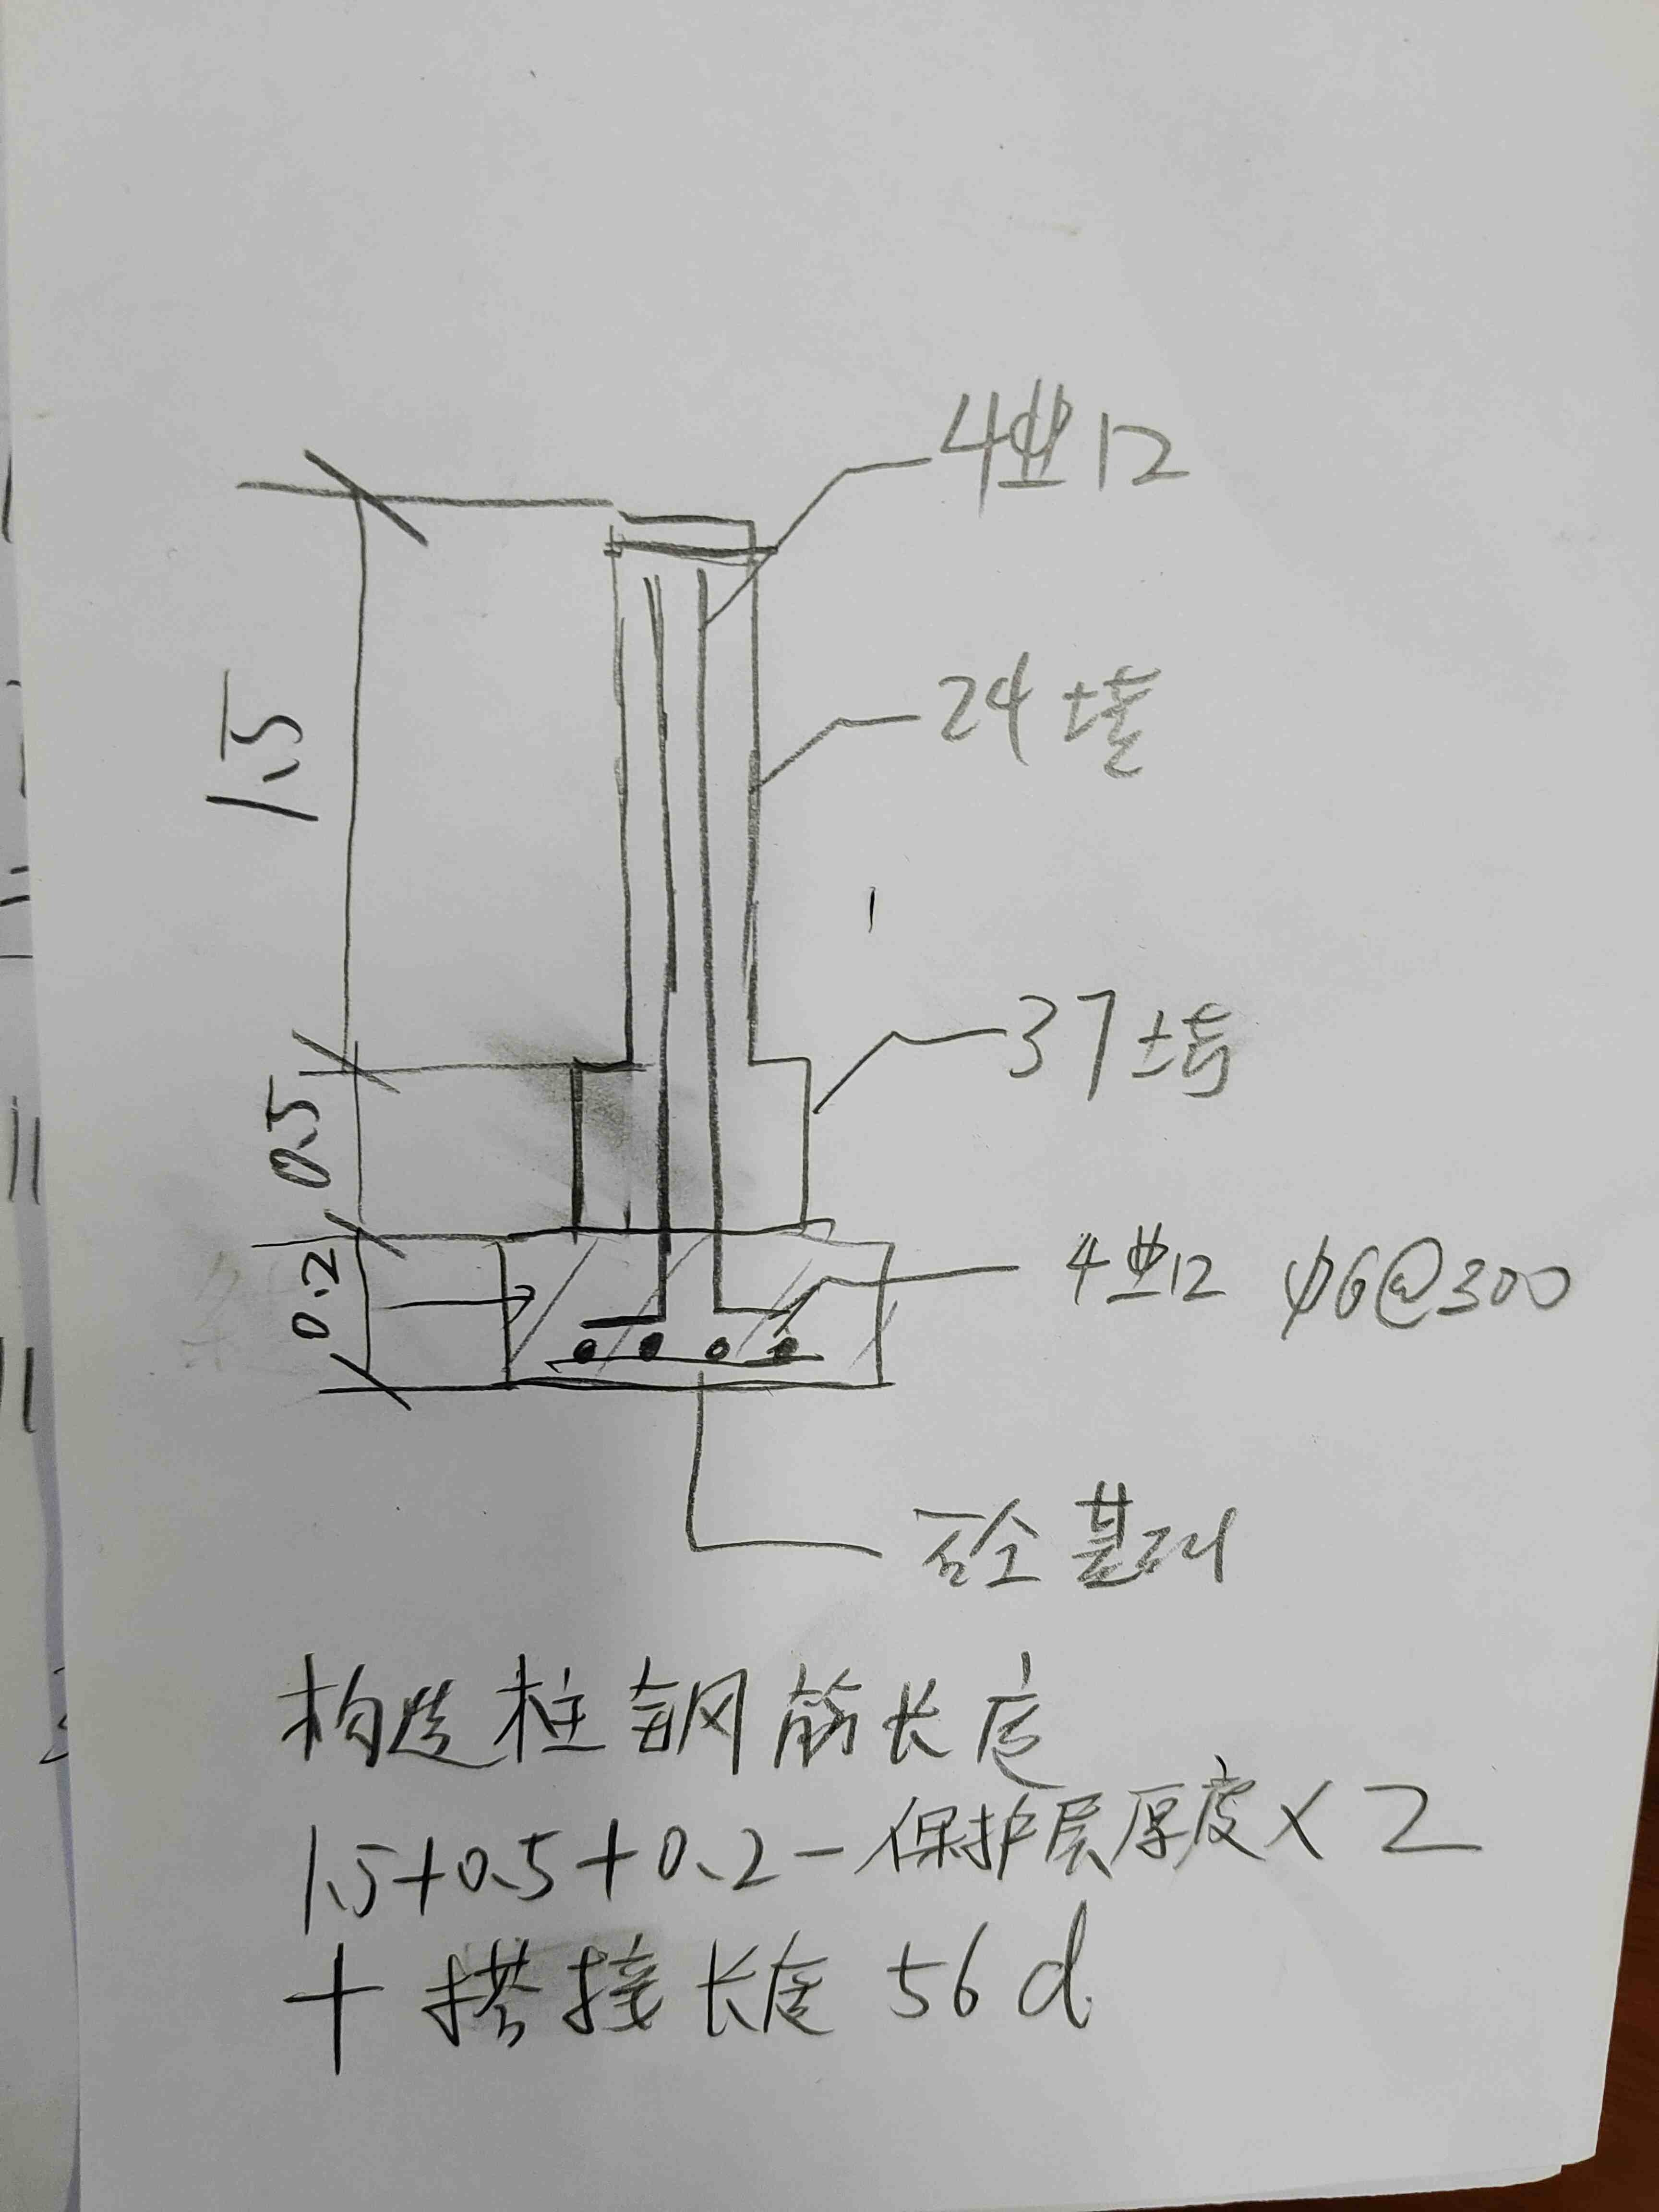 4⏀12
24墙
1.5
37墙
0.5
4⏀12 φ6@300
0.2
砼基础
构造柱钢筋长度
1.5+0.5+0.2-保护层厚度×2
+搭接长度56d